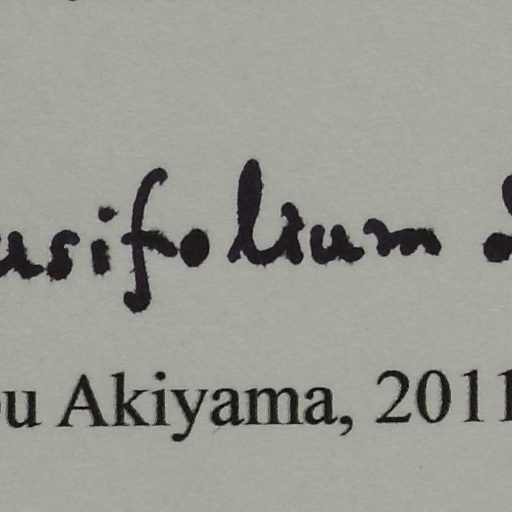 usifolium
ou Akiyama, 2011